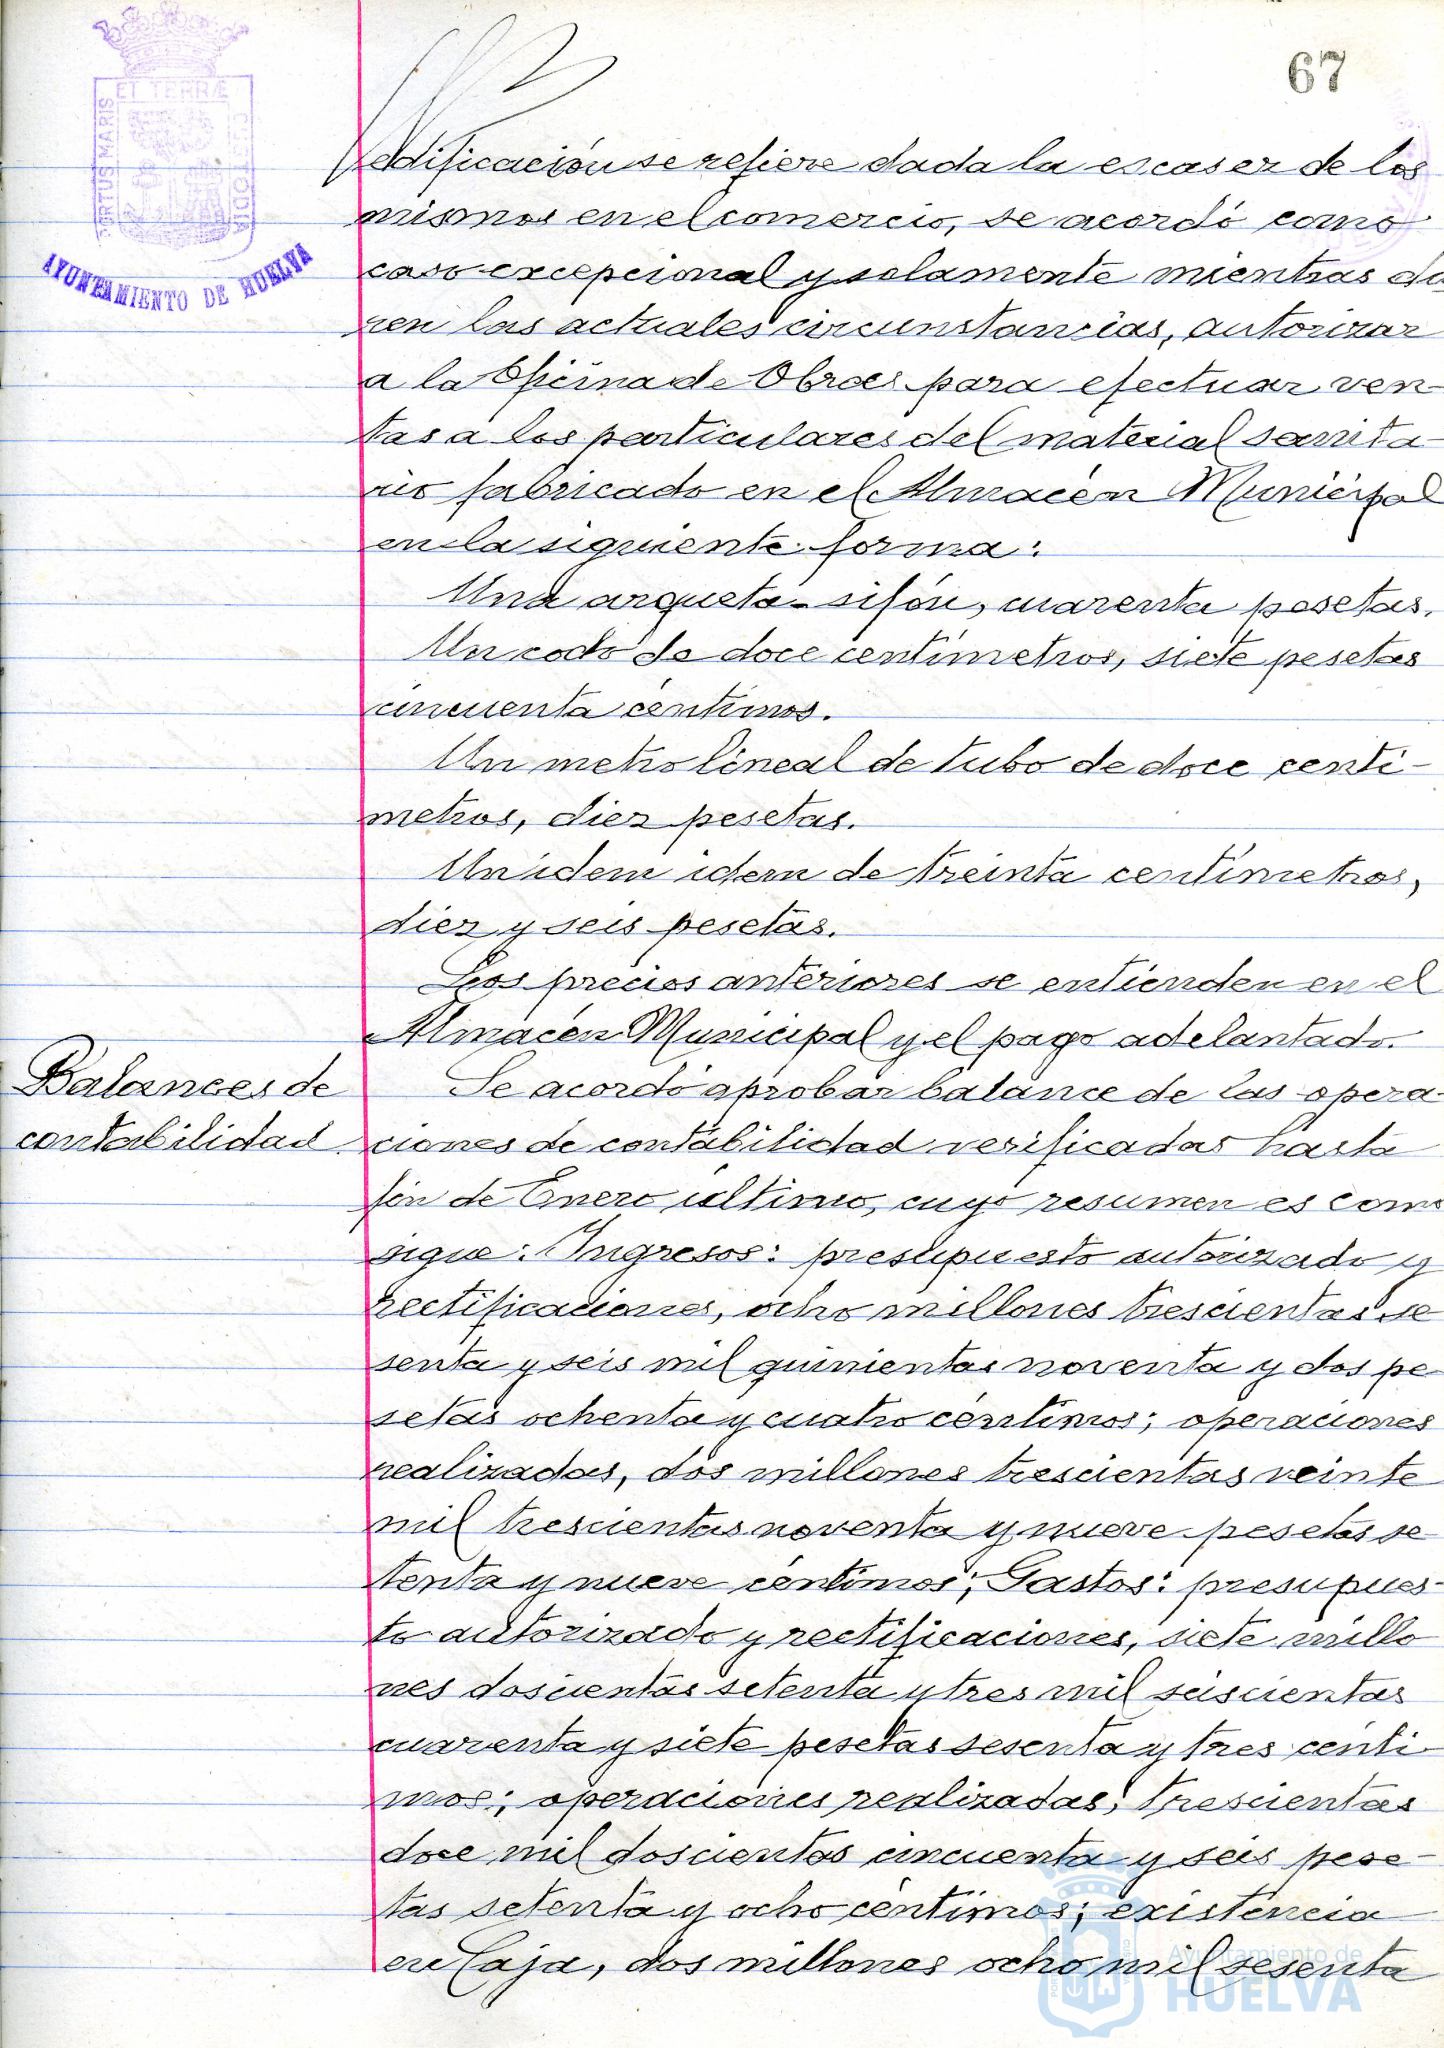 67
ET TERRÆ
PORTUS MARIS
CUSTODIA
AYUNTAMIENTO DE HUELVA
edificación se refiere dada la escasez de los
mismos en el comercio, se acordó como
caso excepcional y solamente mientras du
ren las actuales circunstancias, autorizar
a la Oficina de Obras para efectuar ven-
tas a los particulares del material sanita-
rio fabricado en el Almacén Municipal
en la siguiente forma:
Una arqueta-sifón, cuarenta pesetas.
Un codo de doce centímetros, siete pesetas
cincuenta céntimos.
Un metro lineal de tubo de doce centí-
metros, diez pesetas.
Un idem idem de treinta centímetros,
diez y seis pesetas.
Los precios anteriores se entienden en el
Almacén Municipal y el pago adelantado.
Balances de
contabilidad.
Se acordó aprobar balance de las opera-
ciones de contabilidad verificadas hasta
fin de Enero último, cuyo resumen es como
sigue: Ingresos: presupuesto autorizado y
rectificaciones, ocho millones trescientas se
senta y seis mil quinientas noventa y dos pe
setas ochenta y cuatro céntimos; operaciones
realizadas, dos millones trescientas veinte
mil trescientas noventa y nueve pesetas se
tenta y nueve céntimos; Gastos: presupues-
to autorizado y rectificaciones, siete millo
nes doscientas setenta y tres mil seiscientas
cuarenta y siete pesetas sesenta y tres cénti-
mos; operaciones realizadas, trescientas
doce mil doscientas cincuenta y seis pese-
tas setenta y ocho céntimos; existencia
en Caja, dos millones ocho mil sesenta
Ayuntamiento de
HUELVA